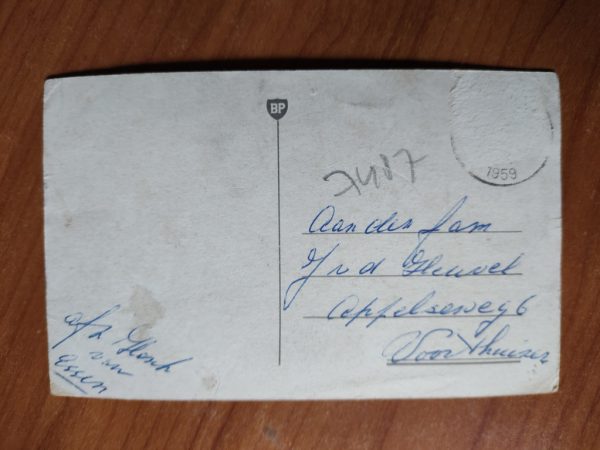 BP
1959
Aan den fam
J v d Heuvel
Appelseweg 6
Voorthuizen
afz Henk
van
Essen